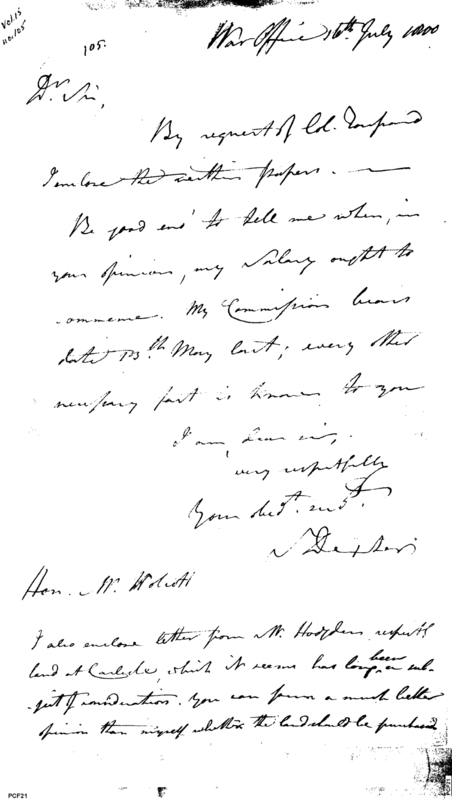 Vol. 15
no. 105
105.
War Office 16th July 1800
Dr Sir,
By request of Col. Toussard
I enclose the within papers. —
Be good eno' to tell me when, in
your opinion, my Salary ought to
commence. My Commission bears
date 13.th May last; every other
necessary fact is known to you
I am, dear sir,
very respectfully
Your obed.t serv.t
S Dexter
Hon. Mr. Wolcott
I also enclose letter from Mr. Hodgdon respectg
land at Carlisle, which it seems has long been a sub-
-ject of consideration. You can form a much better
opinion than myself whether the land should be purchased
PCF21